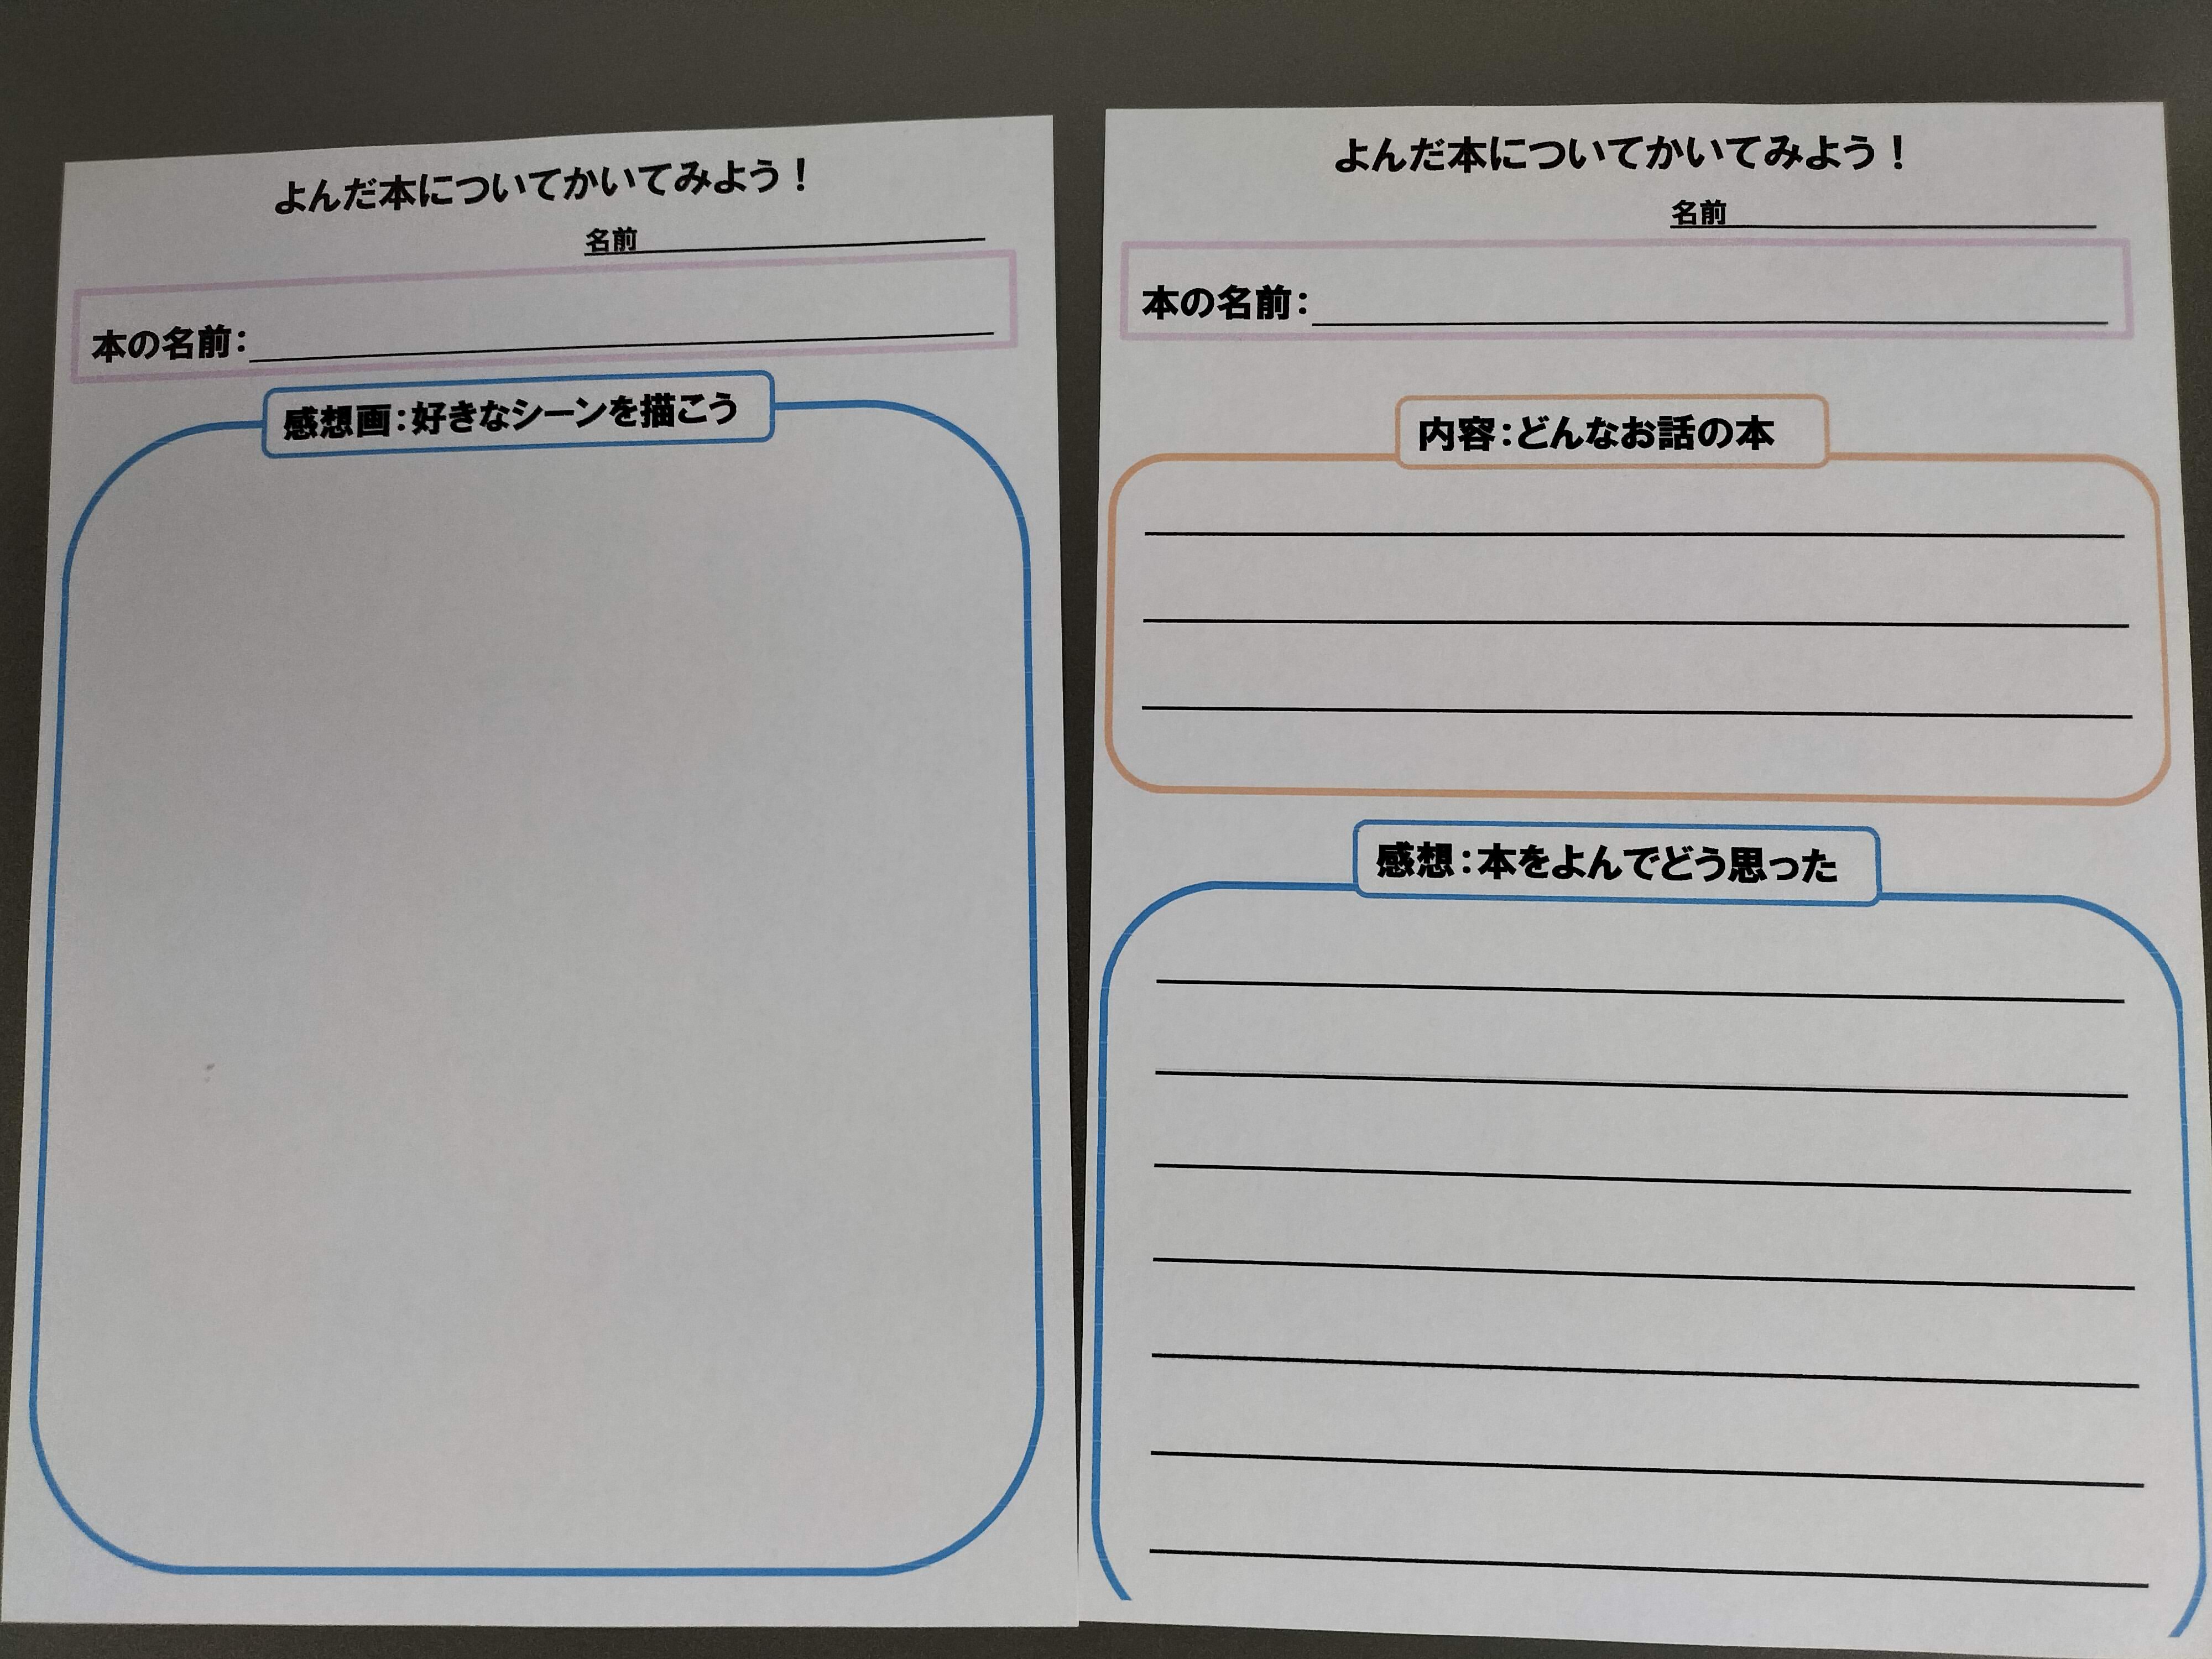 よんだ本についてかいてみよう！
名前
本の名前：
感想画：好きなシーンを描こう
よんだ本についてかいてみよう！
名前
本の名前：
内容：どんなお話の本
感想：本をよんでどう思った